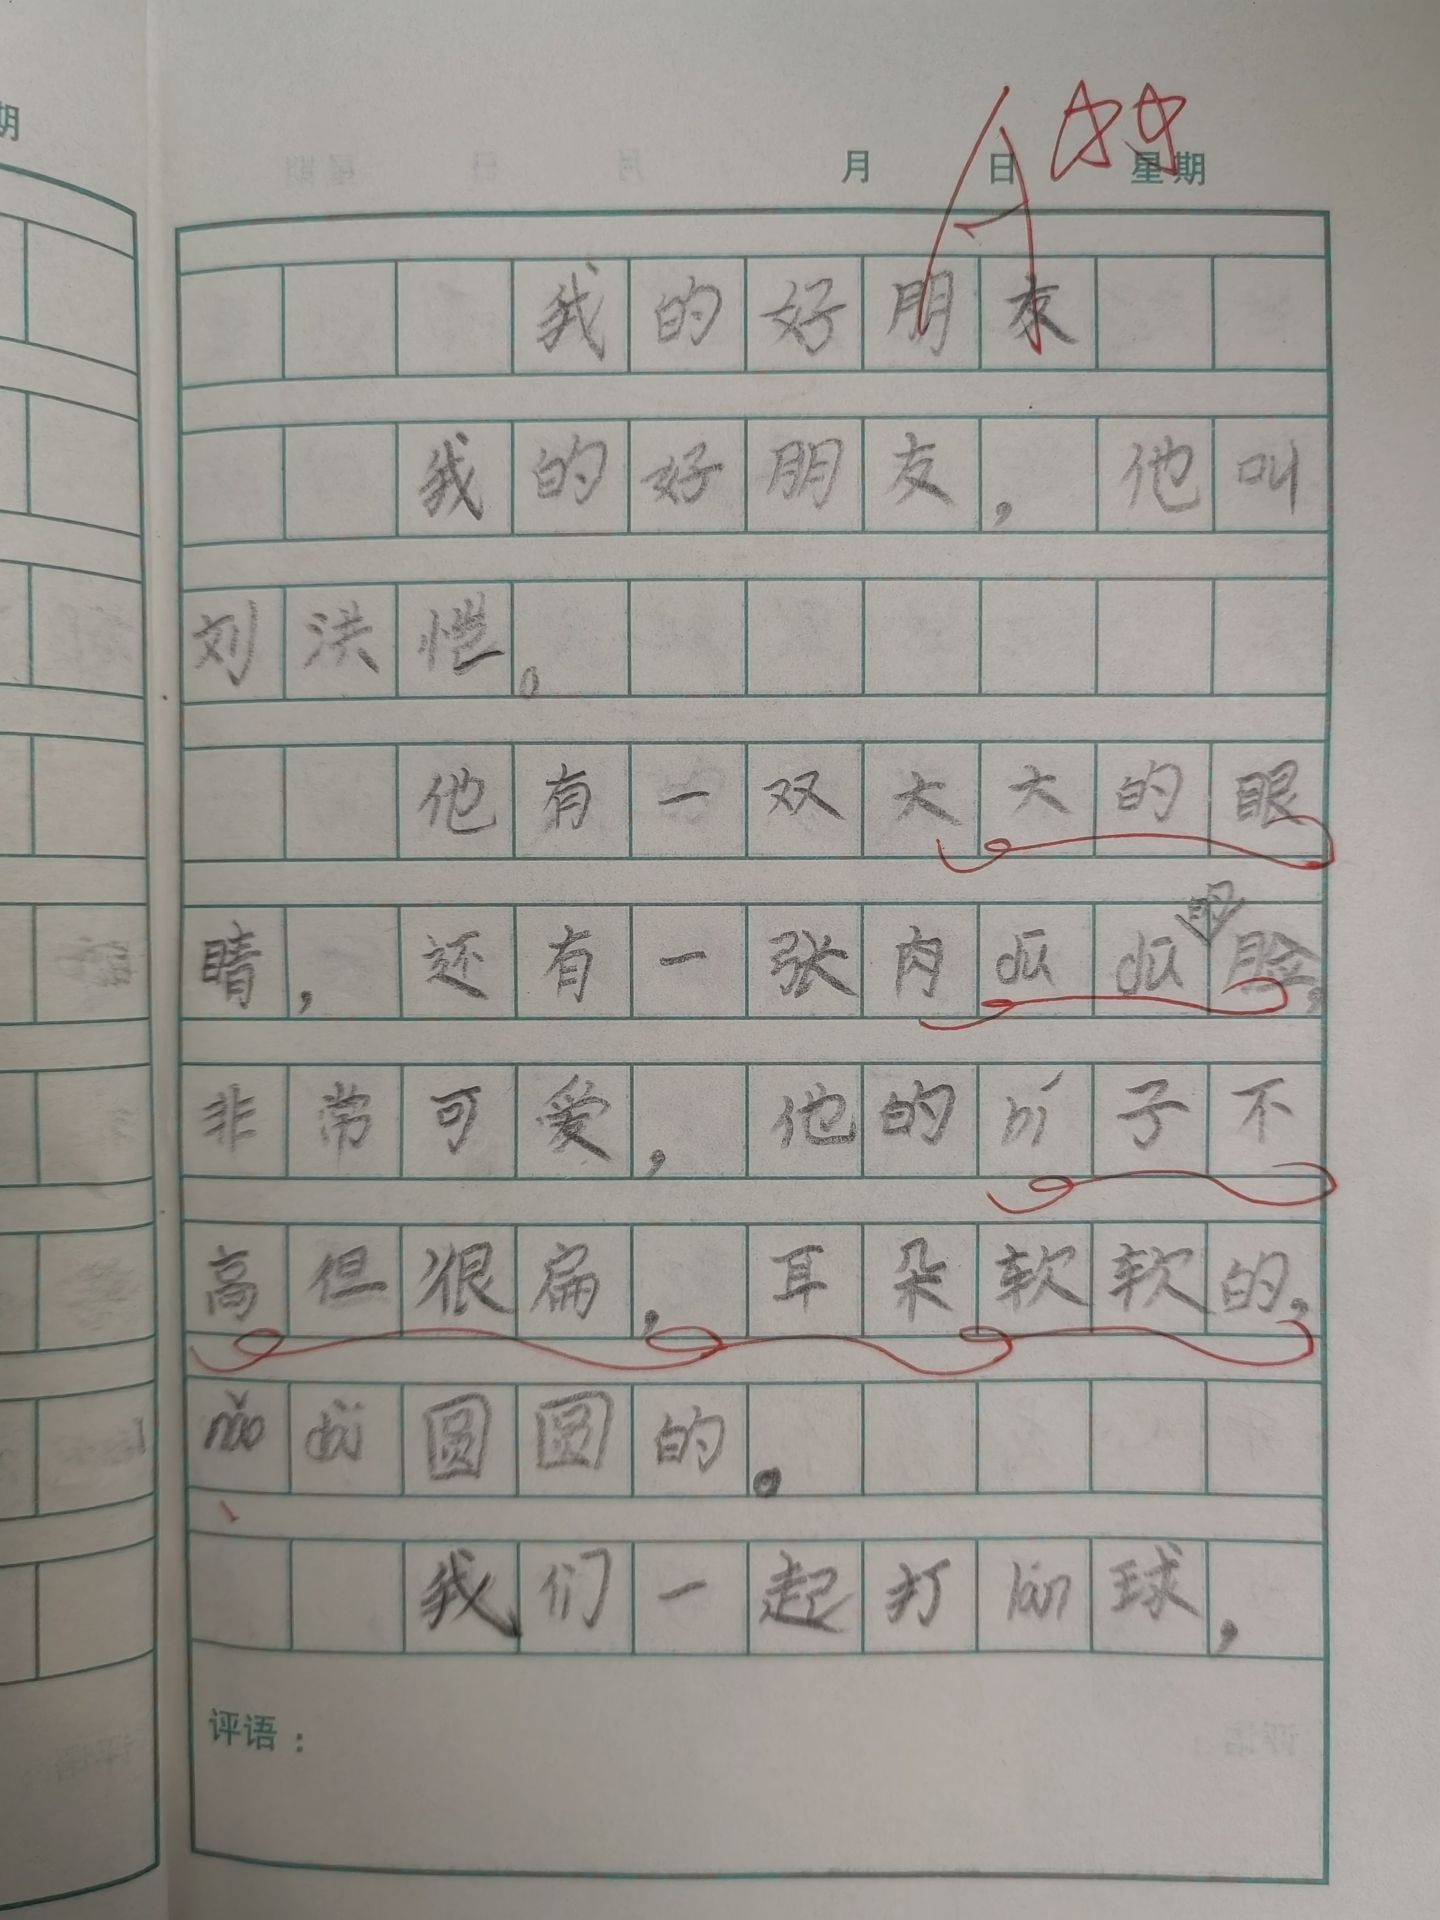 期
月 日 星期
A
我的好朋友
我的好朋友，他叫
刘洪恺。
他有一双大大的眼
睛，还有一张肉dūdū的脸，
非常可爱，他的bí子不
高但很扁，耳朵软软的，
nǎo dɑi圆圆的。
我们一起打lán球，
评语：